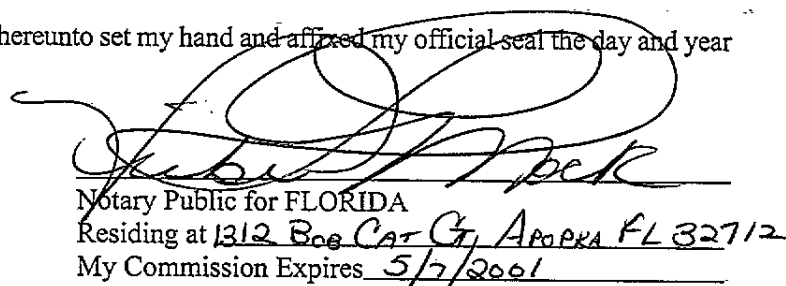 hereunto set my hand and affixed my official seal the day and year
Mock
Notary Public for FLORIDA
Residing at 1312 Bob Cat Ct, Apopka FL 32712
My Commission Expires 5/7/2001